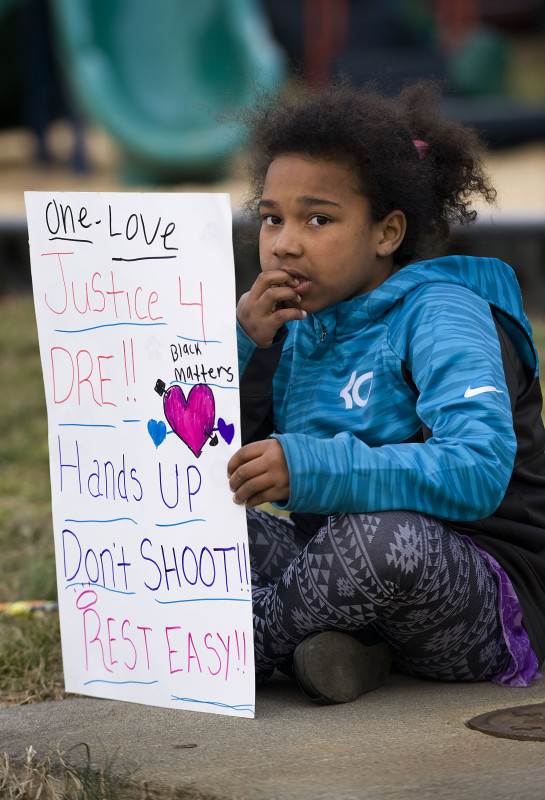 One-Love
Justice 4
DRE!!
Black
matters
Hands UP
Don't SHOOT!!
REST EASY!!